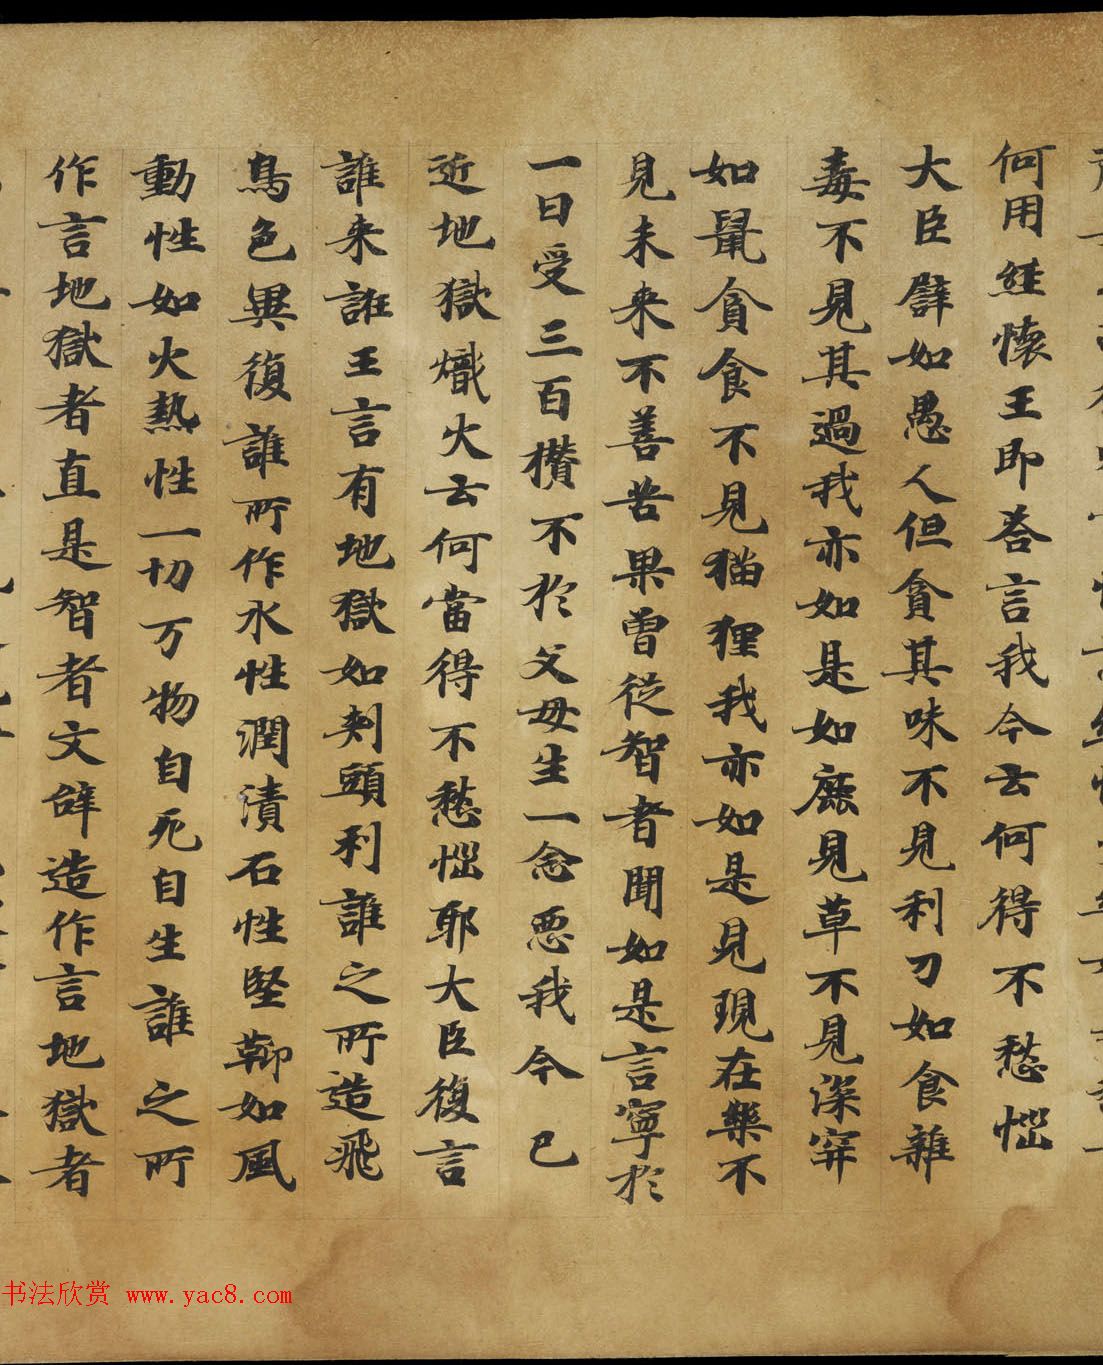 何用経懐王即荅言我今云何得不愁惱
大臣譬如愚人但貪其味不見利刀如食雜
毒不見其過我亦如是如鹿見草不見深穽
如鼠貪食不見猫狸我亦如是見現在樂不
見未来不善苦果曽従智者聞如是言寧於
一日受三百欑不於父母生一念惡我今已
近地獄熾火云何當得不愁惱耶大臣復言
誰来誑王言有地獄如刾頭利誰之所造飛
鳥色異復誰所作水性潤漬石性堅鞕如風
動性如火熱性一切万物自死自生誰之所
作言地獄者直是智者文辝造作言地獄者
书法欣赏 www.yac8.com